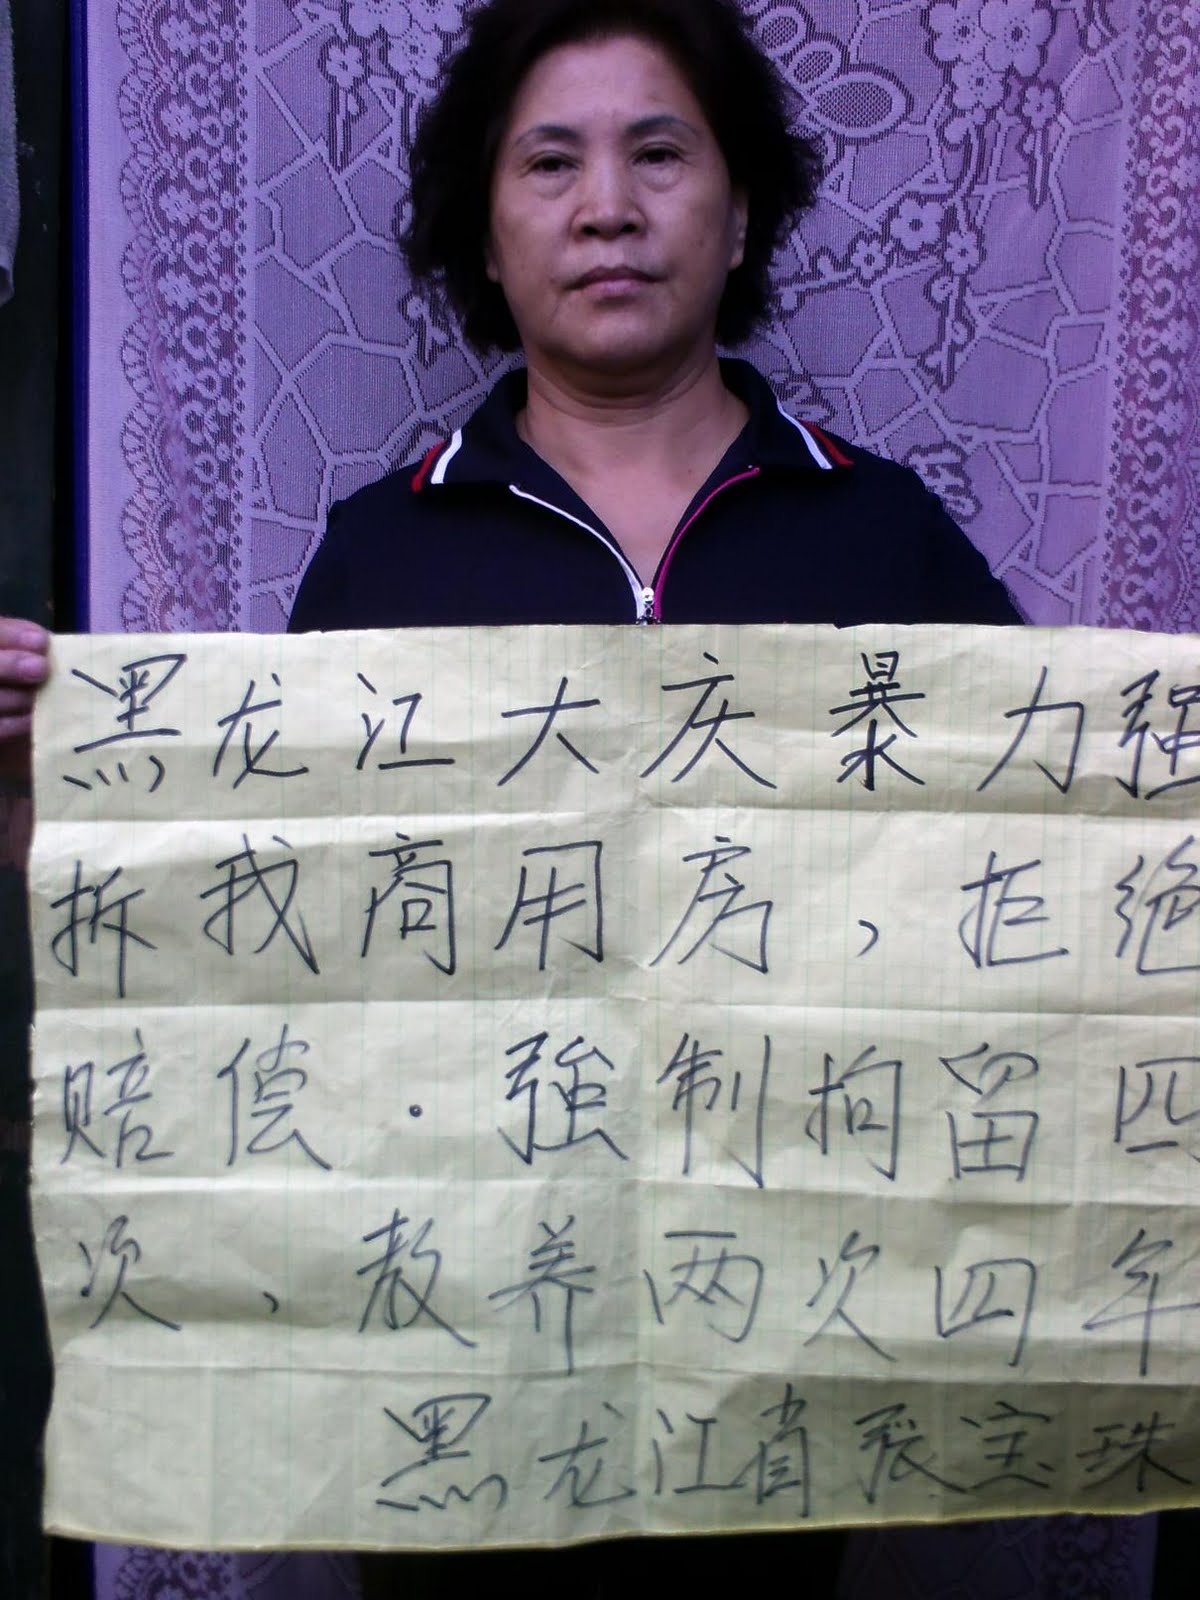 黑龙江大庆暴力强
拆我商用房，拒绝
赔偿．强制拘留四
次、教养两次四年
黑龙江省张宝珠